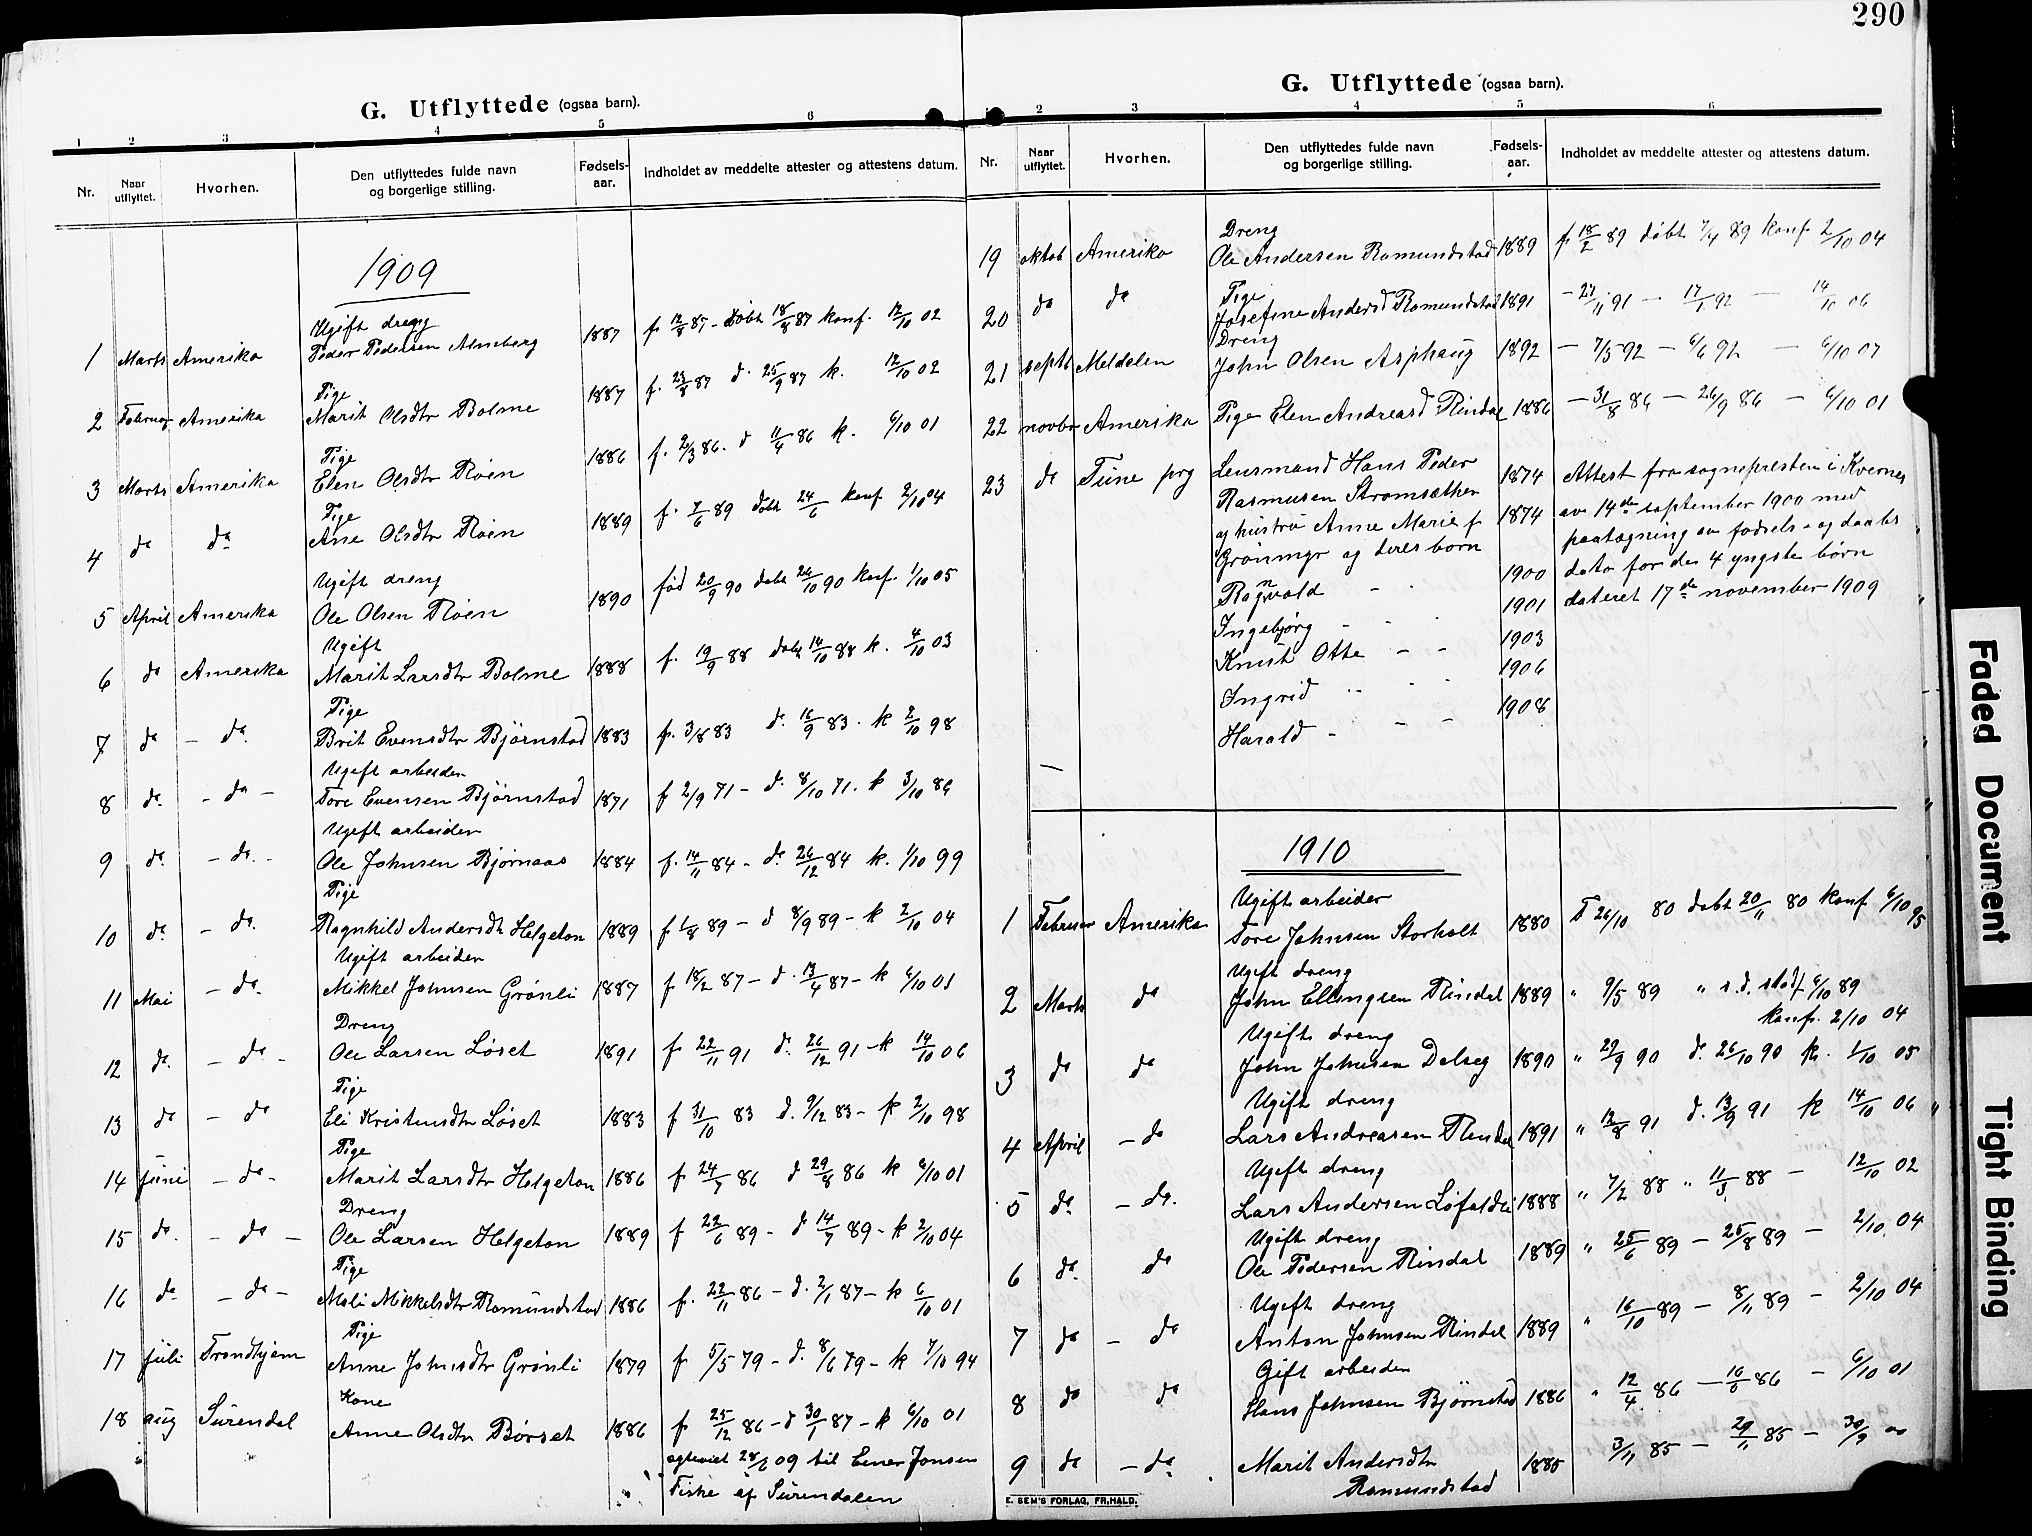 290
G. Utflyttede (ogsaa barn).
1 2 3 4 5 6
Nr. Naar utflyttet. Hvorhen. Den utflyttedes fulde navn og borgerlige stilling. Fødsels-aar. Indholdet av meddelte attester og attestens datum.
1909
Ugift dreng
1 Marts Amerika Peder Pedersen Almberg 1887 f. 12/8 87 - døbt 18/9 87 konf. 12/10 02
Pige
2 Februar Amerika Marit Olsdtr Bolme 1887 f. 23/8 87 d. 25/9 87 k. 12/10 02
Pige
3 Marts Amerika Elen Olsdtr Røen 1886 f. 2/3 86. d 11/4 86 k. 6/10 01
Pige
4 do do Ane Olsdtr Røen 1889 f. 7/6 89 døbt 24/6 konf 2/10 04
Ugift dreng
5 April Amerika Ole Olsen Røen 1890 fød 20/9 90 døbt 26/10 90 konf. 1/10 05
Ugift
6 do Amerika Marit Larsdtr Bolme 1888 f. 19/9 88 døbt 14/10 88 k. 4/10 03
Pige
7 do - do. Brit Evensdtr Bjørnstad 1883 f. 3/8 83 d. 16/9 83. k 2/10 98
Ugift arbeider
8 do. - do - Tore Evensen Bjørnstad 1871 f 2/9 71 - d. 8/10 71. k 3/10 86
Ugift arbeider
9 do. - do. - Ole Johnsen Bjørnaas 1884 f. 14/11 84 - d. 26/12 84 k. 1/10 99
Pige
10 do. - do. Ragnhild Andersdt Helgeton 1889 f 1/8 89 - d 8/9 89 - k 2/10 04
Ugift arbeider
11 Mai - do. Mikkel Johnsen Grønli 1887 f 18/2 87 - d. 13/4 87 - k 6/10 01
Dreng
12 do. - do - Ole Larsen Løset 1891 f 22/11 91 d. 26/12 91 - k 14/10 06
Pige
13 do - do Eli Kristensdtr Løset 1883 f 31/10 83 d. 9/12 83 - k 2/10 98
Pige
14 Juni - do - Marit Larsdtr Helgeton 1886 f 24/7 86 d 29/8 86 k 6/10 01
Dreng
15 do. - do - Ole Larsen Helgeton 1889 f 22/6 89 - d 14/7 89 - k 2/10 04
Pige
16 do - do - Mali Mikkelsdtr Romundstad 1886 f. 22/11 86 - d. 2/1 87 - k 6/10 01
Pige
17 Juli Trondhjem Anne Johnsdtr Grønli 1879 f 5/5 79 - d. 8/6 79 - k 7/10 94
Kone
18 aug Surendal Anne Olsdtr Børset 1886 f 25/12 86 - d 30/1 87 - k 6/10 01
egteviet 24/6 09 til Einer Jonsen
Fiske af Surendalen
G. Utflyttede (ogsaa barn).
1 2 3 4 5 6
Nr. Naar utflyttet. Hvorhen. Den utflyttedes fulde navn og borgerlige stilling. Fødsels-aar. Indholdet av meddelte attester og attestens datum.
Dreng
19 oktob Amerika Ole Andersen Romundstad 1889 f 18/2 89 døbt 7/4 89 konf 2/10 04
Pige
20 do do Josefine Andersd Romundstad 1891 - 27/11 91 - 17/1 92 - 14/10 06
Dreng
21 septb Meldalen John Olsen Asphaug 1892 - 7/5 92 - 6/6 92 - 6/10 07
22 novbr Amerika Pige Elen Andreasd Rindal 1886 - 31/8 86 - 26/9 86 - 6/10 01
23 do Tune prg Lensmand Hans Peder 1874 Attest fra sognepresten i Kvernes
Rasmusen Strømsæther av 14de september 1900 med
og hustru Anne Marie f 1874 paategning av fødsels- og daabs
Grønmyr og deres børn dato for de 4 yngste børn
Ragnvald - - 1900 dateret 17de november 1909
Ingebjørg - - 1901
Knut Otte - - 1903
Ingrid 1906
Harald - - - 1908
1910
Ugift arbeider
1 Februar Amerika Tore Johnsen Storholt 1880 F 26/10 80 døbt 20/11 80 konf 6/10 95
Ugift dreng
2 Marts do John Ellingsen Rindal 1889 " 9/5 89 " s.d. stadf 6/10 89
konf. 2/10 04
Ugift dreng
3 do do John Johnsen Dalseg 1890 " 29/9 90 d. 26/10 90 k. 1/10 05
Ugift dreng
4 April - do Lars Andreasen Rindal 1891 " 12/8 91 d. 13/9 91 k 14/10 06
Ugift dreng
5 do - do. Lars Andersen Løfaldli 1888 " 7/2 88 " 11/3 88 - 12/10 02
Ugift dreng
6 do. do Ole Pedersen Rindal 1889 " 25/6 89 - 25/8 89 - 2/10. 04
Ugift dreng
7 do - do Anton Johnsen Rindal 1889 " 16/10 89 - 8/11 89 - 2/10 04
Gift arbeider
8 do do Hans Johnsen Bjørnstad 1886 " 12/4 86 - 16/5 86 - 6/10 01
9 do - do Marit Andersdtr 1885 3/11 85 - 29/11 85 - 30/9 00
Romundstad
E. SEM'S FORLAG, FR.HALD.
Faded Document
Tight Binding